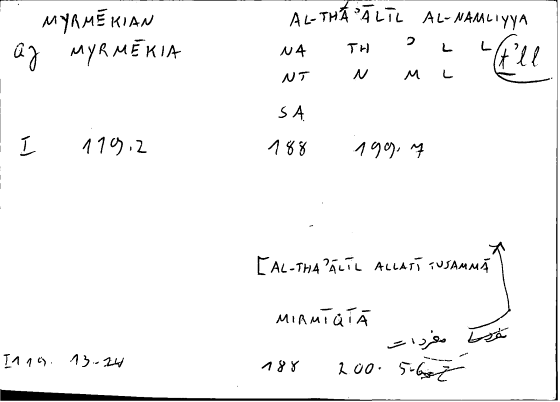 MYRMĒKIAN AL-THĀʾĀLĪL AL-NAMLIYYA
aj MYRMĒKIA NA TH ʾ L L ṯʾll
NT N M L
SA
I 119.2 188 199.7
[AL-THAʾĀLĪL ALLATĪ TUSAMMĀ
MIRMĪQIĀ
مفردات
I 119. 13-24 188 200.